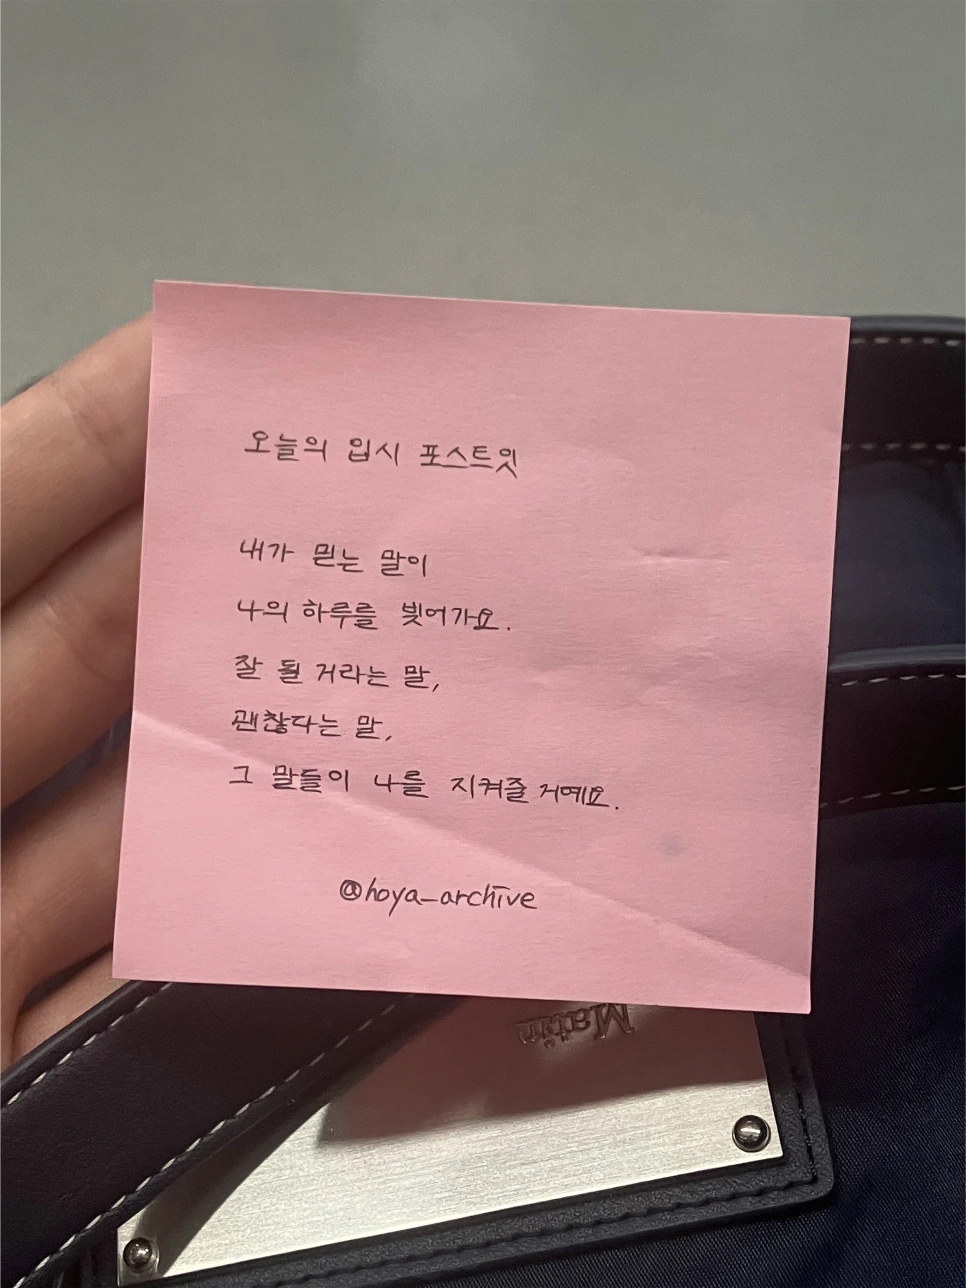 오늘의 입시 포스트잇
내가 믿는 말이
나의 하루를 빚어가요.
잘 될 거라는 말,
괜찮다는 말,
그 말들이 나를 지켜줄 거예요.
@hoya_archive
Matin